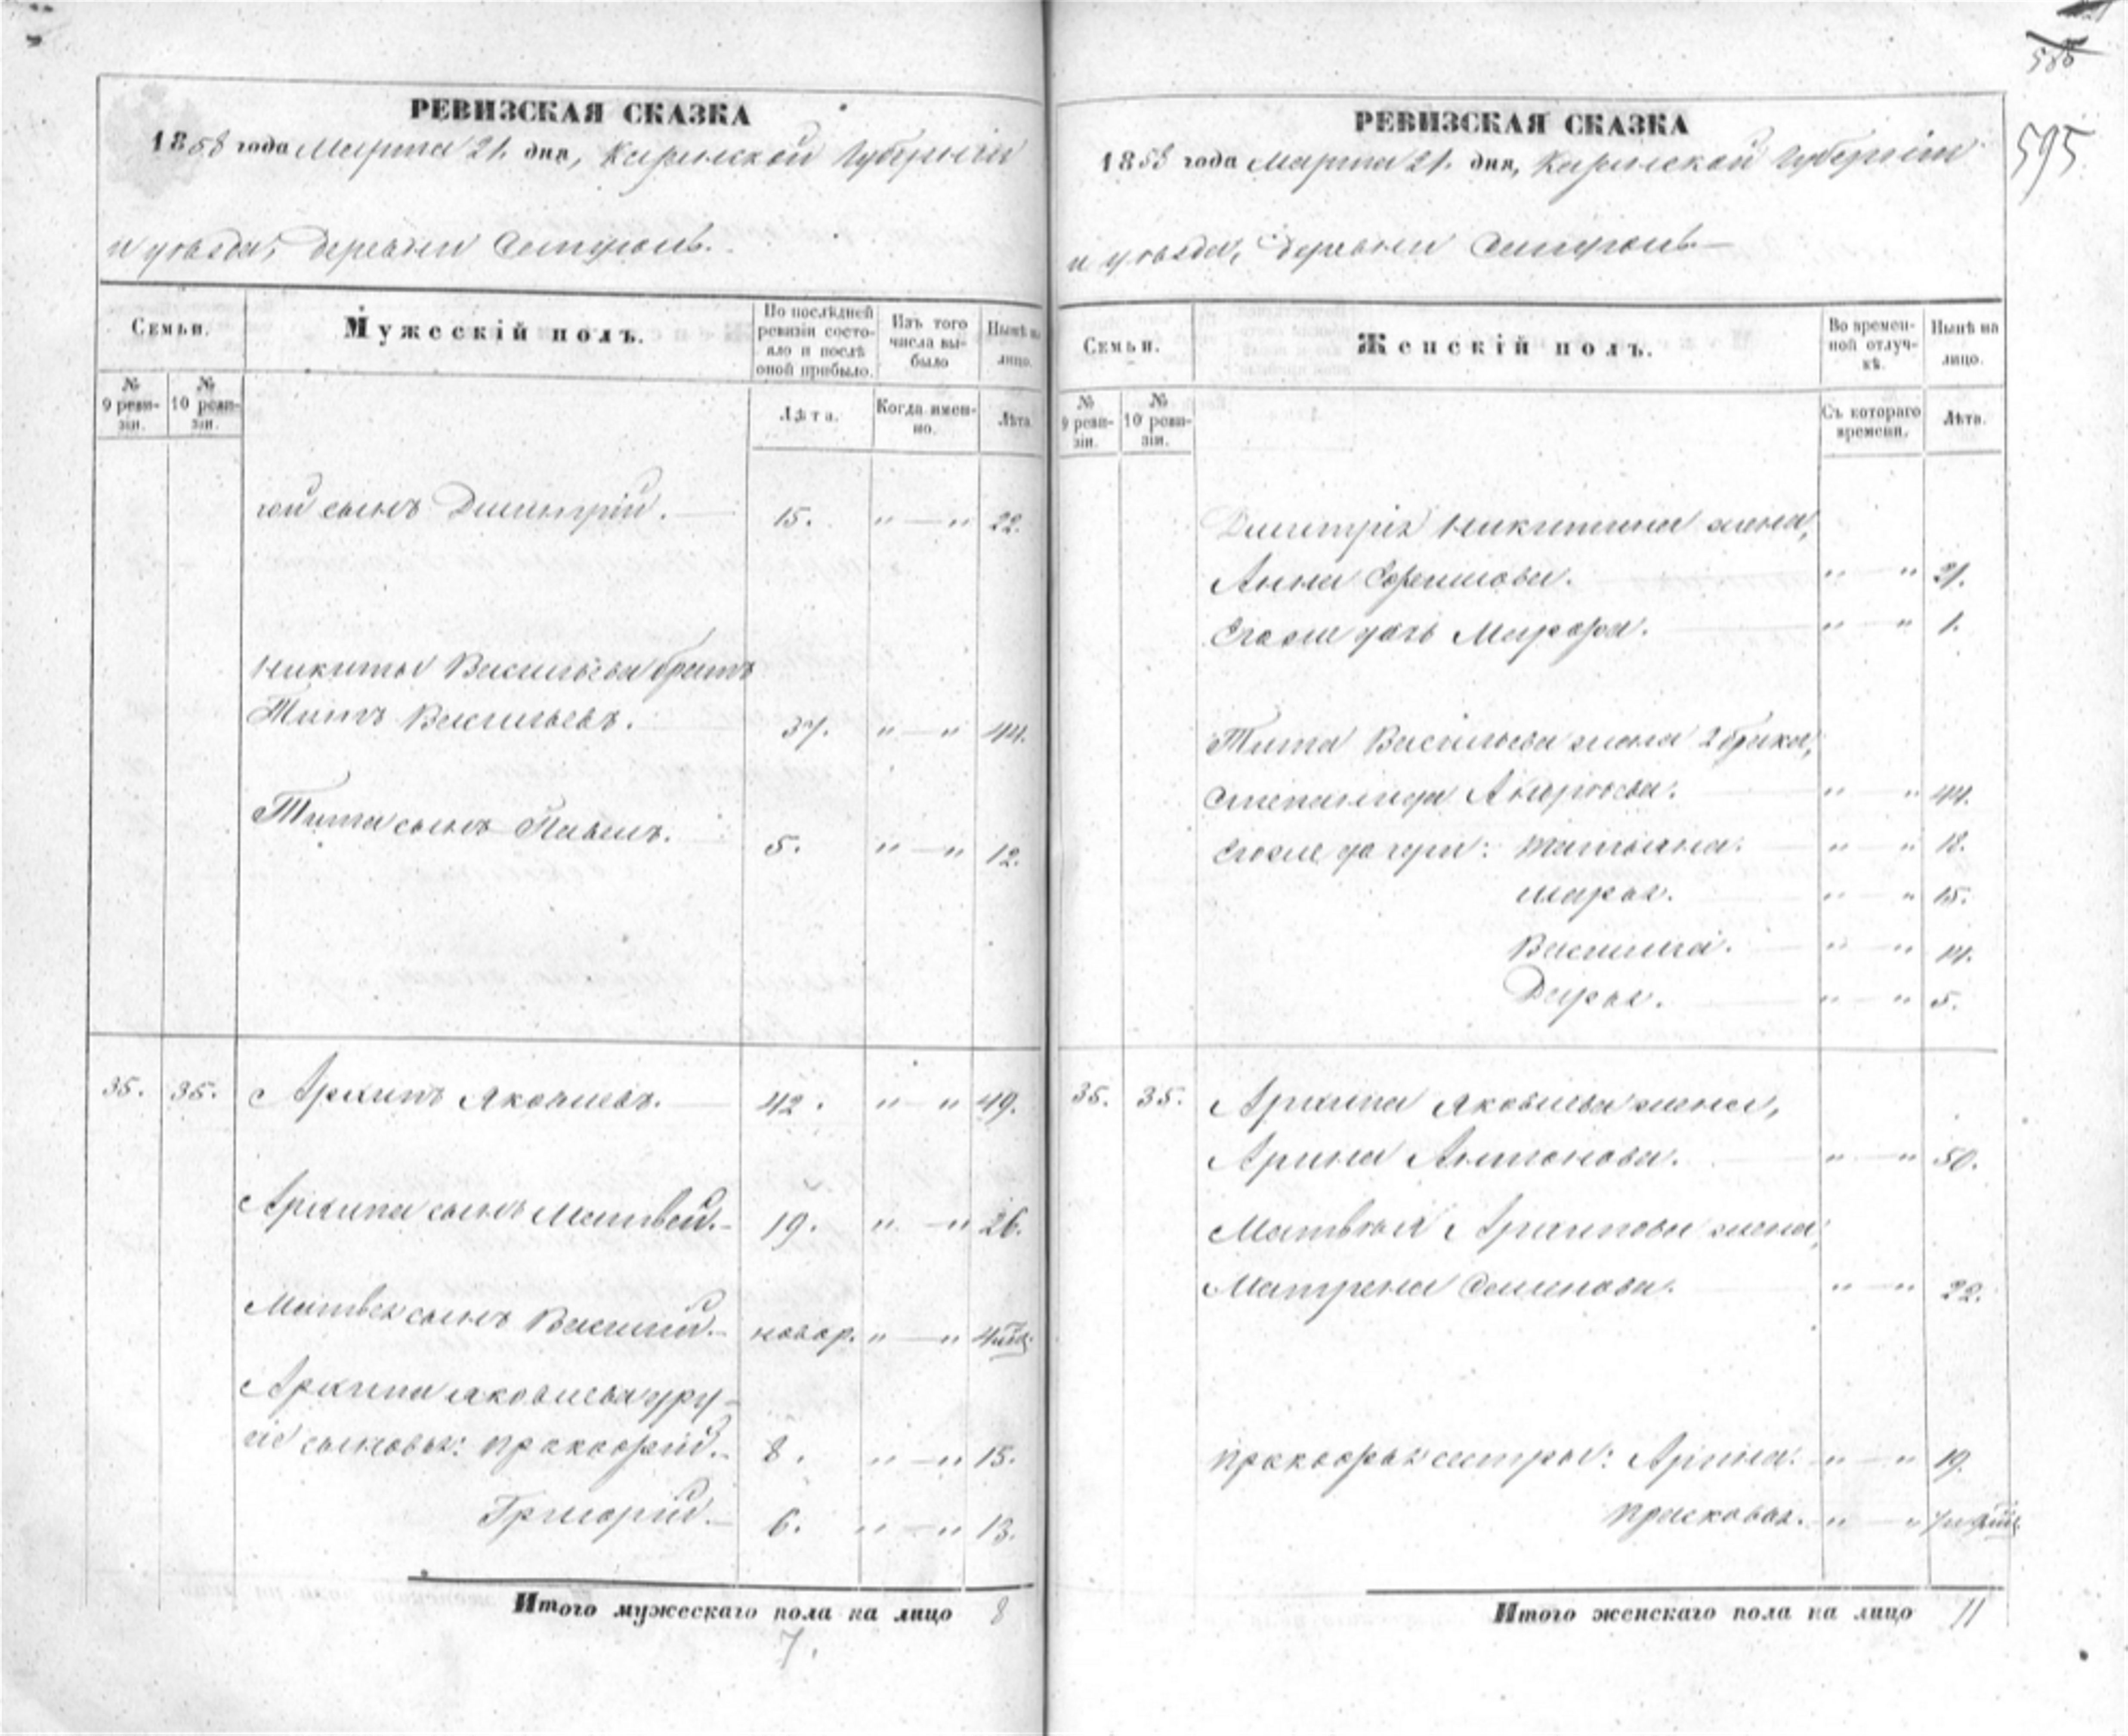 585
595
РЕВИЗСКАЯ СКАЗКА
1858 года Марта 21. дня, Губерніи
и уѣзда, деревни
Семьи. Мужескій полъ. По послѣдней ревизіи состояло и послѣ оной прибыло. Изъ того числа выбыло Нынѣ на лицо.
№ 9 ревизіи. № 10 ревизіи. Лѣта. Когда именно. Лѣта.
гой сынъ Дмитрій. 15. " — " 22.
Никиты Васильева братъ
Титъ Васильевъ. 37. " — " 44.
Тита сынъ Павелъ. 5. " — " 12.
35. 35. Архипъ Яковлевъ. 42. " — " 49.
Архипа сынъ Матвей. 19. " — " 26.
Матвея сынъ Василій. новор. " — " 4 мѣс.
Архипа Яковлева дру-
гіе сыновья: Прокофій. 8. " — " 15.
Григорій. 6. " — " 13.
Итого мужескаго пола на лицо 8
7.
РЕВИЗСКАЯ СКАЗКА
1858 года Марта 21. дня, Губерніи
и уѣзда, деревни
Семьи. Женскій полъ. Во временной отлучкѣ. Нынѣ на лицо.
№ 9 ревизіи. № 10 ревизіи. Съ котораго времени. Лѣта.
Дмитрія Никитина жена,
Анна Ефимова. " — " 21.
Ихъ дочь Марфа. " — " 1.
Тита Васильева жена 2 брака,
Степанида Андреева. " — " 44.
дочери: Татьяна. " — " 18.
Марья. " — " 15.
Василиса. " — " 14.
Дарья. " — " 5.
35. 35. Архипа Яковлева жена,
Арина Антонова. " — " 50.
Матвѣя Архипова жена,
Матрена Семенова. " — " 22.
Прокофья сестры: Арина. " — " 19.
Прасковья. " — "
Итого женскаго пола на лицо 11